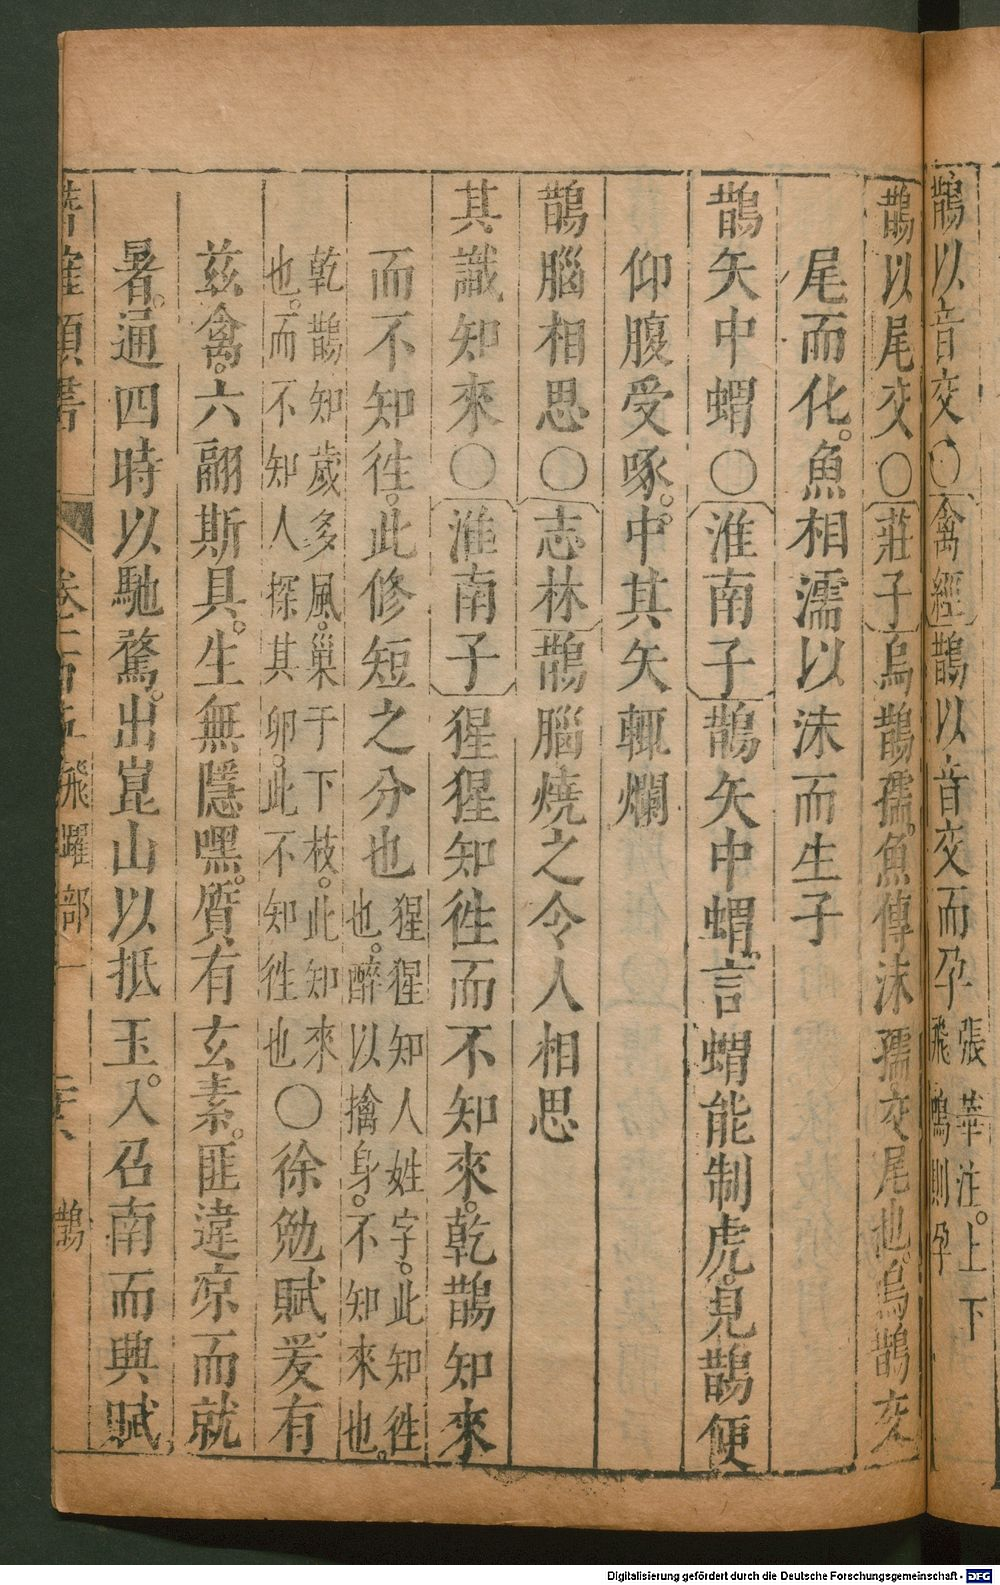 鵲以音交○禽經鵲以音交而孕張華注。上下飛鳴則孕
鵲以尾交○莊子烏鵲孺。魚傳沫孺。交尾也。烏鵲交
尾而化。魚相濡以沫而生子
鵲矢中蝟○淮南子鵲矢中蝟。言蝟能制虎。見鵲便
仰腹受啄。中其矢輒爛
鵲腦相思○志林鵲腦燒之令人相思
其識知來○淮南子猩猩知徃而不知來。乾鵲知來
而不知徃。此修短之分也猩猩知人姓字。此知徃也。醉以擒身。不知來也。
乾鵲知歲多風。巢于下枝。此知來也。而不知人探其卵。此不知徃也○徐勉賦爰有
茲禽。六翮斯具。生無隱嘿。質有玄素。匪違凉而就
暑。通四時以馳騖。出崑山以抵玉。入召南而興賦。
卷二百五 飛躍部一 鵲
Digitalisierung gefördert durch die Deutsche Forschungsgemeinschaft - DFG